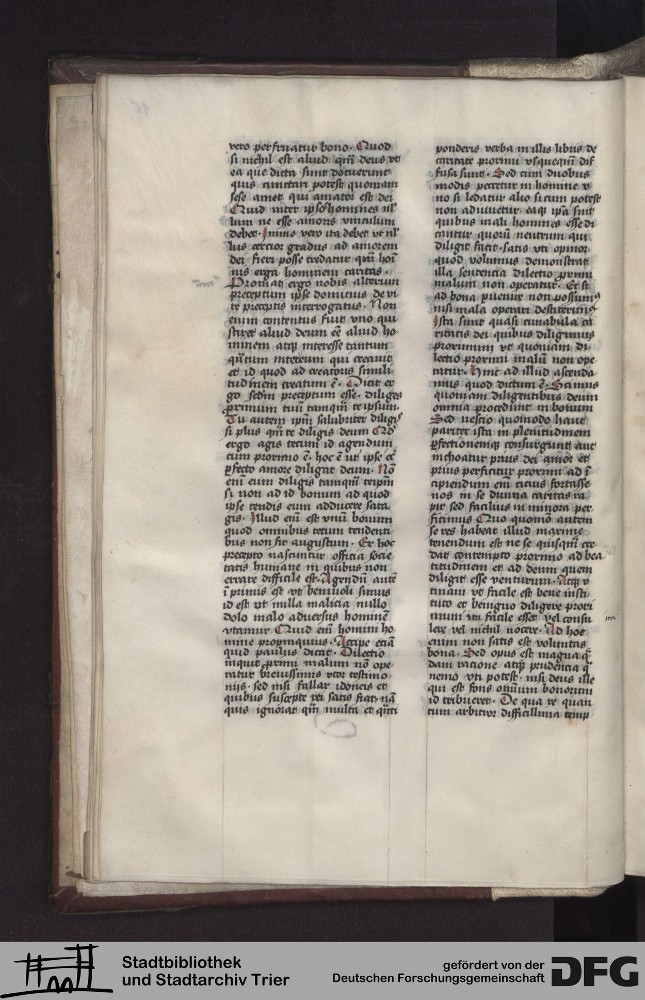 vero perfruatur bono. Quod
si nichil est aliud qm̄ deus vt
ea que dicta sunt docuerunt
quis cunctari potest quoniam
sese amet qui amator est dei
Quid inter ipsos homines nl̄
lum ne esse amoris vinculum
debet. Immo vero ita debet vt nl̄
lus cercior gradus ad amorem
dei fieri posse credatur qm̄ hoī
nis erga hominem caritas.
Promat ergo nobis alterum
preceptum ipse dominus de vi
te preceptis interrogatus. Non
enim contentus fuit vno qui
sciret aliud deum eē aliud ho
minem atqꝫ interesse tantum
qn̄tum intereum qui creauit
et id quod ad creatoris simili
tudinem creatum ē. Dicit er
go scd̄m preceptum esse. diliges
proximum tuū tamqm̄ te ipsum.
Tu autem ip̄m salubriter diligis
si plus qm̄ te diligis deum Qd̄
ergo agis tecum id agendum
cum proximo ē. hoc ē ut ipse eciā
ꝑfecto amore diligat deum. Nō
enī eum diligis tamqm̄ teip̄m
si non ad id bonum ad quod
ipse tendis eum adducere sata
gis. Illud enī est vnū bonum
quod omnibus tecum tendenti
bus non fit angustum. Ex hoc
precepto nascuntur officia socie
tatis humane in quibus non
errare difficile est. Agendū autē
ī primis est vt beniuoli simus
id est vt nulla malicia nullo
dolo malo aduersus hominē
vtamur Quid enī homini ho
mine propinquius. Accipe eciā
quid paulus dicat. Dilectio
inquit ꝓximi malum nō ope
ratur breuissimis vtor testimo
nijs. sed nisi fallar idoneis et
quibus suscepte rei satis fiat. nā
quis ignorat qm̄ multa et qn̄ti
ponderis verba in illis libris de
caritate proximi vsquequam dif
fusa sunt. Sed cum duobus
modis peccetur in homine v
no si ledatur alio si cum potest
non adiuuetur eaqꝫ ipsa sint
quibus mali homines esse di
cantur quorū neutrum qui
diligit facit. satis vti opinor
quod volumus demonstrat
illa sentencia dilectio ꝓximi
malum non operatur. Et si
ad bona ꝑuenire non possumus
nisi mala operari desierimus
Ista sunt quasi cunabula ca
ritatis dei quibus diligimus
proximum vt quoniam di
lectio proximi malū non ope
ratur. Hinc ad illud ascenda
mus quod dictum ē. Scimus
quoniam diligentibus deum
omnia procedunt in bonum
Sed nescio quomodo haut
pariter ista in plenitudinem
ꝑfectionemqꝫ consurgunt aut
inchoatur prius dei amor et
prius perficitur proximi ad ī
cipiendum enī cicius fortasse
nos in se diuina caritas ra
pit sed facilius in minora per
ficimus Quo quomō autem
se res habeat illud maxime
tenendum est ne se quisqm̄ cre
dat contempto proximo ad bea
titudinem et ad deum quem
diligit esse venturum. Atqꝫ v
tinam vt facile est bene insti
tuto et benigno diligere proxi
mum ita facile esset vel consu
lere vel nichil nocere. Ad hoc
enim non satis est voluntas
bona. Sed opus est magna q̄
dam racione atqꝫ prudencia q̄
nemo vti potest. nisi deus ille
qui est fons omnium bonorum
id tribueret. De qua re quan
tum arbitror difficillima temp
Stadtbibliothek
und Stadtarchiv Trier
gefördert von der
Deutschen Forschungsgemeinschaft
DFG